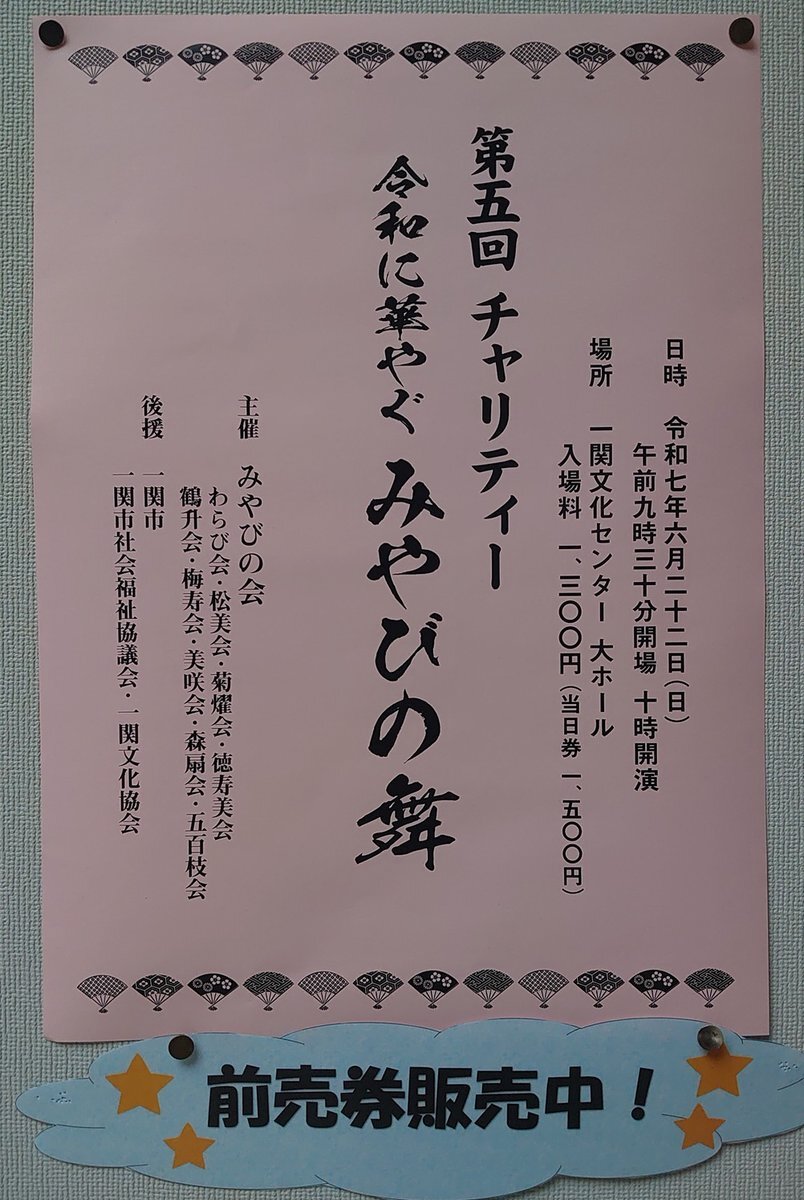 日時 令和七年六月二十二日(日)
午前九時三十分開場 十時開演
場所 一関文化センター 大ホール
入場料 一、三〇〇円(当日券 一、五〇〇円)
第五回 チャリティー
令和に華やぐ みやびの舞
主催 みやびの会
わらび会・松美会・菊燿会・徳寿美会
鶴升会・梅寿会・美咲会・森扇会・五百枝会
後援 一関市
一関市社会福祉協議会・一関文化協会
前売券販売中!